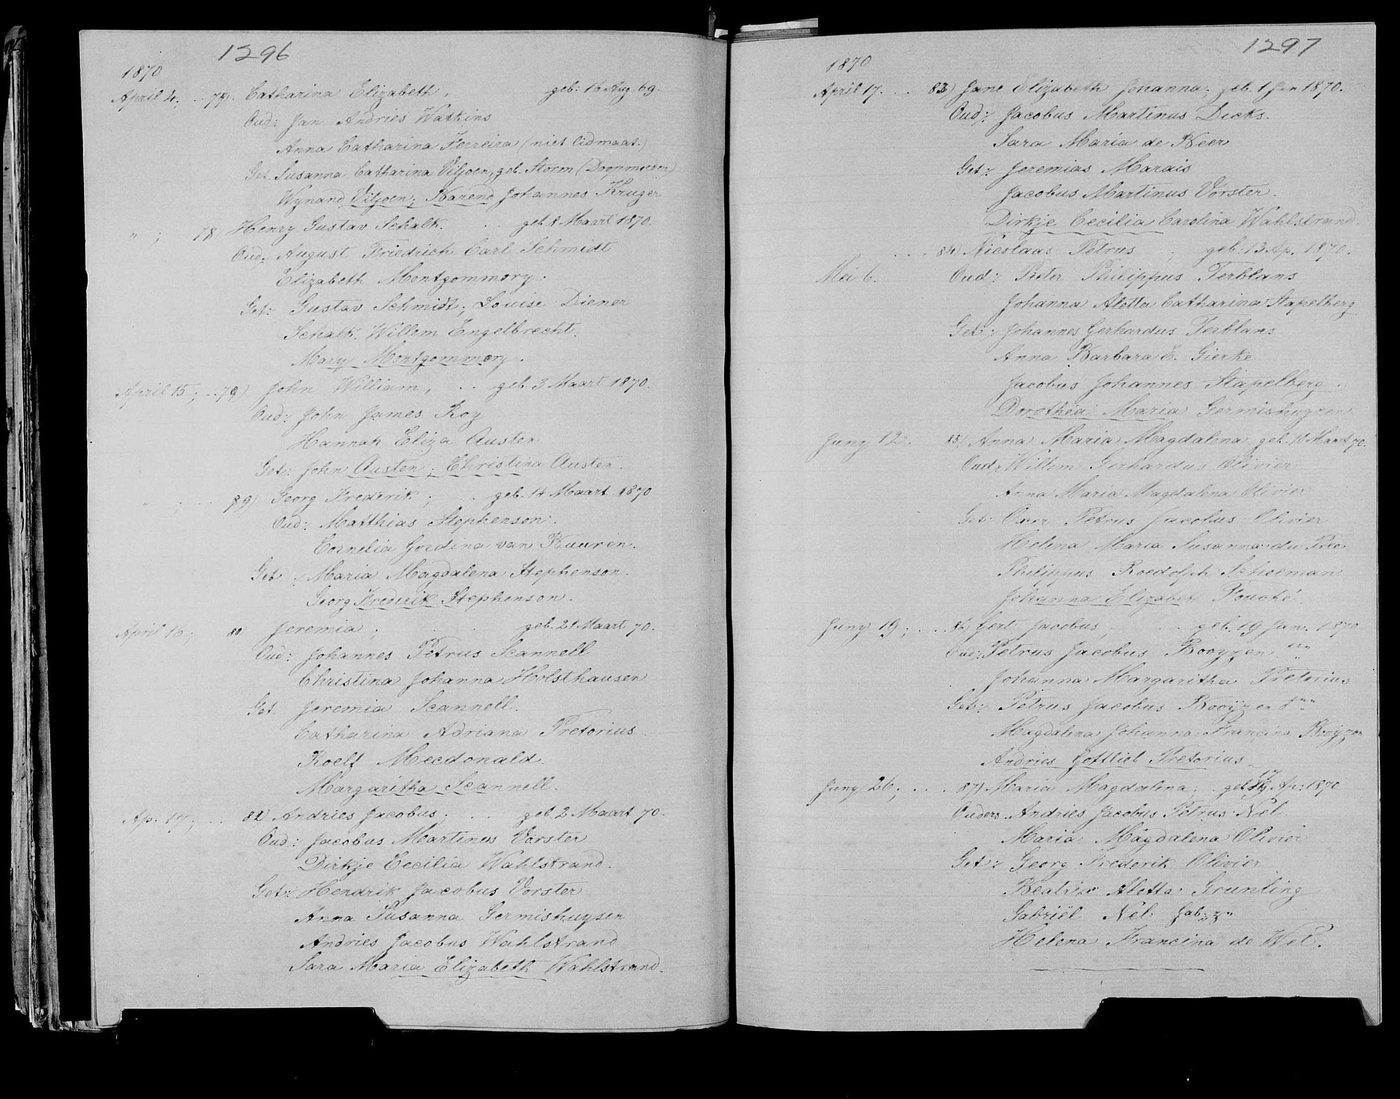 1296
1870
April 2. .. 77). Catharina Elizabeth, geb: 16 Aug 69.
Oud: Jan Andries Watkins
Anna Catharina Ferreira (niet lidmaat.)
Get. Susanna Catharina Viljoen, geb. Storm (Doopmoeder)
Wynand Viljoen; Barend Johannes Kruger
" ; 78 Henry Gustav Schalk. geb. 8 Maart 1870.
Oud: August Friedrich Carl Schmidt
Elizabeth Montgommery.
Get: Gustav Schmidt; Louise Diener
Schalk Willem Engelbrecht.
Mary Montgommery.
April 15; .. 79) John William, .. geb. 3 Maart 1870.
Oud: John James Roy
Hannah Eliza Austen
Get: John Austen; Christina Austen.
89) Georg Frederik; . geb. 14 Maart 1870
Oud: Matthias Stephenson.
Cornelia Gordina van Buuren.
Get: Maria Magdalena Stephenson.
Georg Frederik Stephenson.
April 16; Jeremia. geb. 21 Maart 70.
Oud: Johannes Petrus Scannell
Christina Johanna Holsthausen
Get. Jeremia Scannell.
Catharina Adriana Pretorius.
Roelf Mecdonald.
Margaritha Scannell.
Ap. 17; ... 82) Andries Jacobus; geb. 2 Maart 70.
Oud: Jacobus Martines Vorster
Dirkje Cecilia Wahlstrand.
Get: Hendrik Jacobus Vorster
Anna Susanna Germishuysen
Andries Jacobus Wahlstrand
Sara Maria Elizabeth Wahlstrand.
1297
1870
April 17. ... 83) Jane Elizabeth Johanna. geb. 1 Jan 1870.
Oud: Jacobus Martinus Dicks.
Sara Maria de Beer
Get: Jeremias Marais
Jacobus Martinus Vorster
Dirkje Cecilia Carolina Wahlstrand
.... 84. Nicolaas Petrus geb: 13 Ap. 1870.
Mei 6. Oud: Pieter Philippus Terblans
Johanna Aletta Catharina Stapelberg
Get: Johannes Gerhardus Terblans
Anna Barbara E. Gierke
Jacobus Johannes Stapelberg.
Dorothea Maria Germishuyzen
Juny 12. 85) Anna Maria Magdalena geb. Maart 70.
Oud: Willem Gerhardus Olivier
Anna Maria Magdalena Olivier
Get: Petrus Jacobus Olivier
Helena Maria Susanna du Pree
Philippus Roedolph Schoeman
Johanna Elizabet Fouché.
Juny 19; ... Gert Jacobus, geb. 19 Jan. 1870
Oud: Petrus Jacobus Rooyzen
Johanna Margaritha Pretorius
Get: Petrus Jacobus Rooyzen
Magdalena Johanna Francina Rooyzen
Andries Gottlieb Pretorius.
Juny 26; ... 87) Maria Magdalena; geb. 17 Ap: 1870
Ouders. Andries Jacobus Petrus Nel
Maria Magdalena Olivier
Get: Georg Frederik Olivier
Beatrix Aletta Grunling
Gabriël Nel Gab: zn
Helena Francina de Wet.